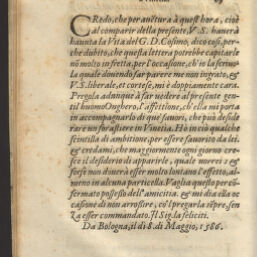 CRedo, che per auētura à quest'hora, cioè
al comparir della presente, V. S. hauerà
hauuta la Vita del G. D. Cosimo, dico così, per-
che dubito, che quella lettera potrebbe capitarle
nō molto in fretta, per l'occasione, ch'io le scriuo
la quale douendo far parere me non ingrato, &
V. S. liberale, et cortese, mi è doppiamente cara.
Pregola adunque à far uedere al presente gen-
til'huomo Onghero, l'affettione, ch'ella mi porta
in accompagnarlo di que' fauori, che può deside
rare un forastiere in Vinetia. Hò in ciò qualche
scintilla di ambitione, per essere fauorito da lei.
& credami, che maggiormente ogni giorno cre-
sce il desiderio di appairle, quale morei & s
forse non douerà esser molto lontano l'effetto, al
meno in alcuna particella. Vaglia questo per cō
fermato possesso dell'amicitia. & mi dia ella oc
casione di non arrossire, cō'l pregarla sēpre, sen
za esser commandato. Il Sig. la feliciti.
Da Bologna, il dì 8. di Maggio, 1586.